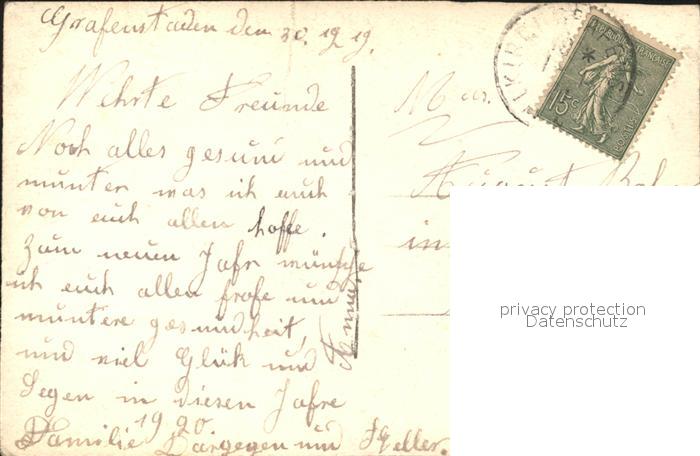 Grafenstaden den 30. 1919.
Wehrte Freunde
Noch alles gesund und
munter was ich auch
von euch allen hoffe.
Zum neuen Jahr wünsche
ich euch allen frohe und
muntere gesundheit,
und viel Glük und
Segen in diesen Jahre
1920.
Familie und Keller.
15c
August
in
privacy protection
Datenschutz